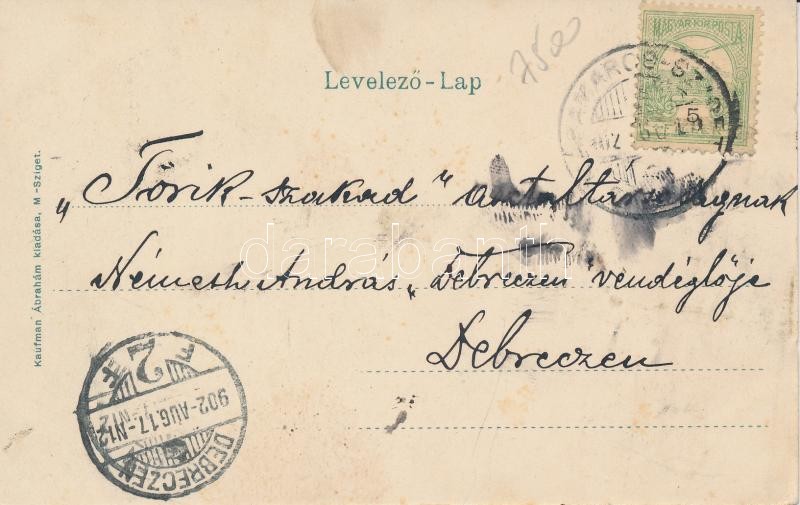 7500
MAGYAR KIR. POSTA
Levelező-Lap
5
„Törik-szakad" asztaltársaságnak
Németh András „Debreczen" vendéglője
Debreczen
Kaufman Ábrahám kiadása, M-Sziget.
darabanth
DEBRECZEN
902-AUG.17-N12
F 2 F